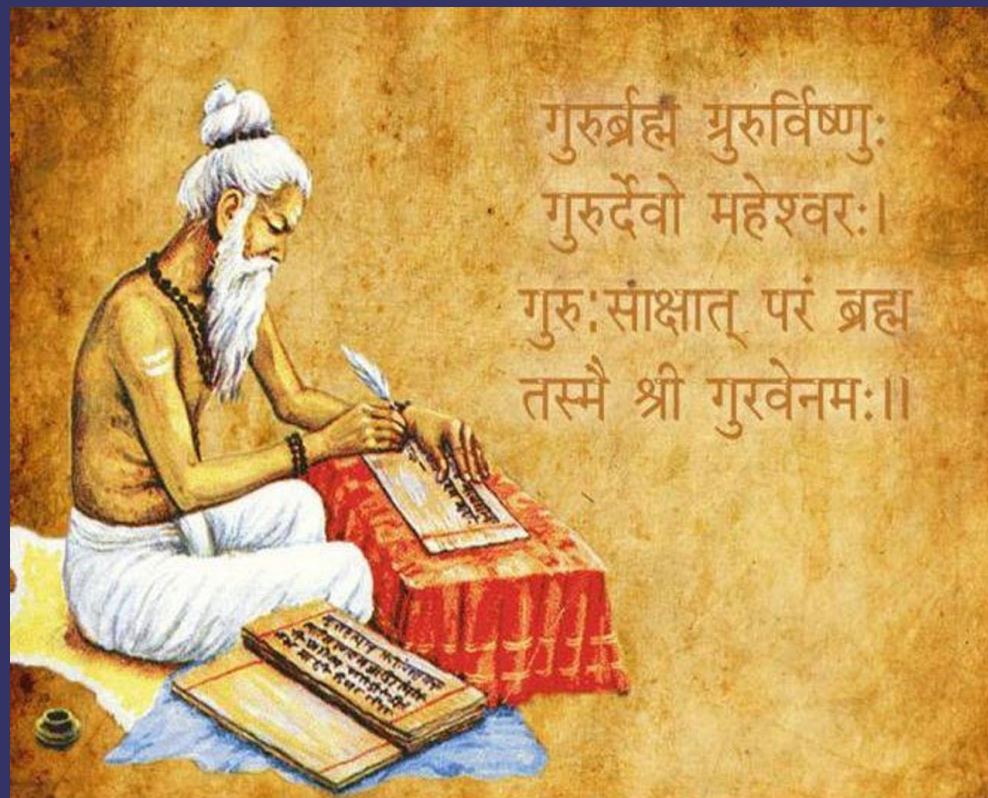 गुरुर्ब्रह्म ग्रुरुर्विष्णुः
गुरुर्देवो महेश्वरः।
गुरु:साक्षात् परं ब्रह्म
तस्मै श्री गुरवेनमः॥